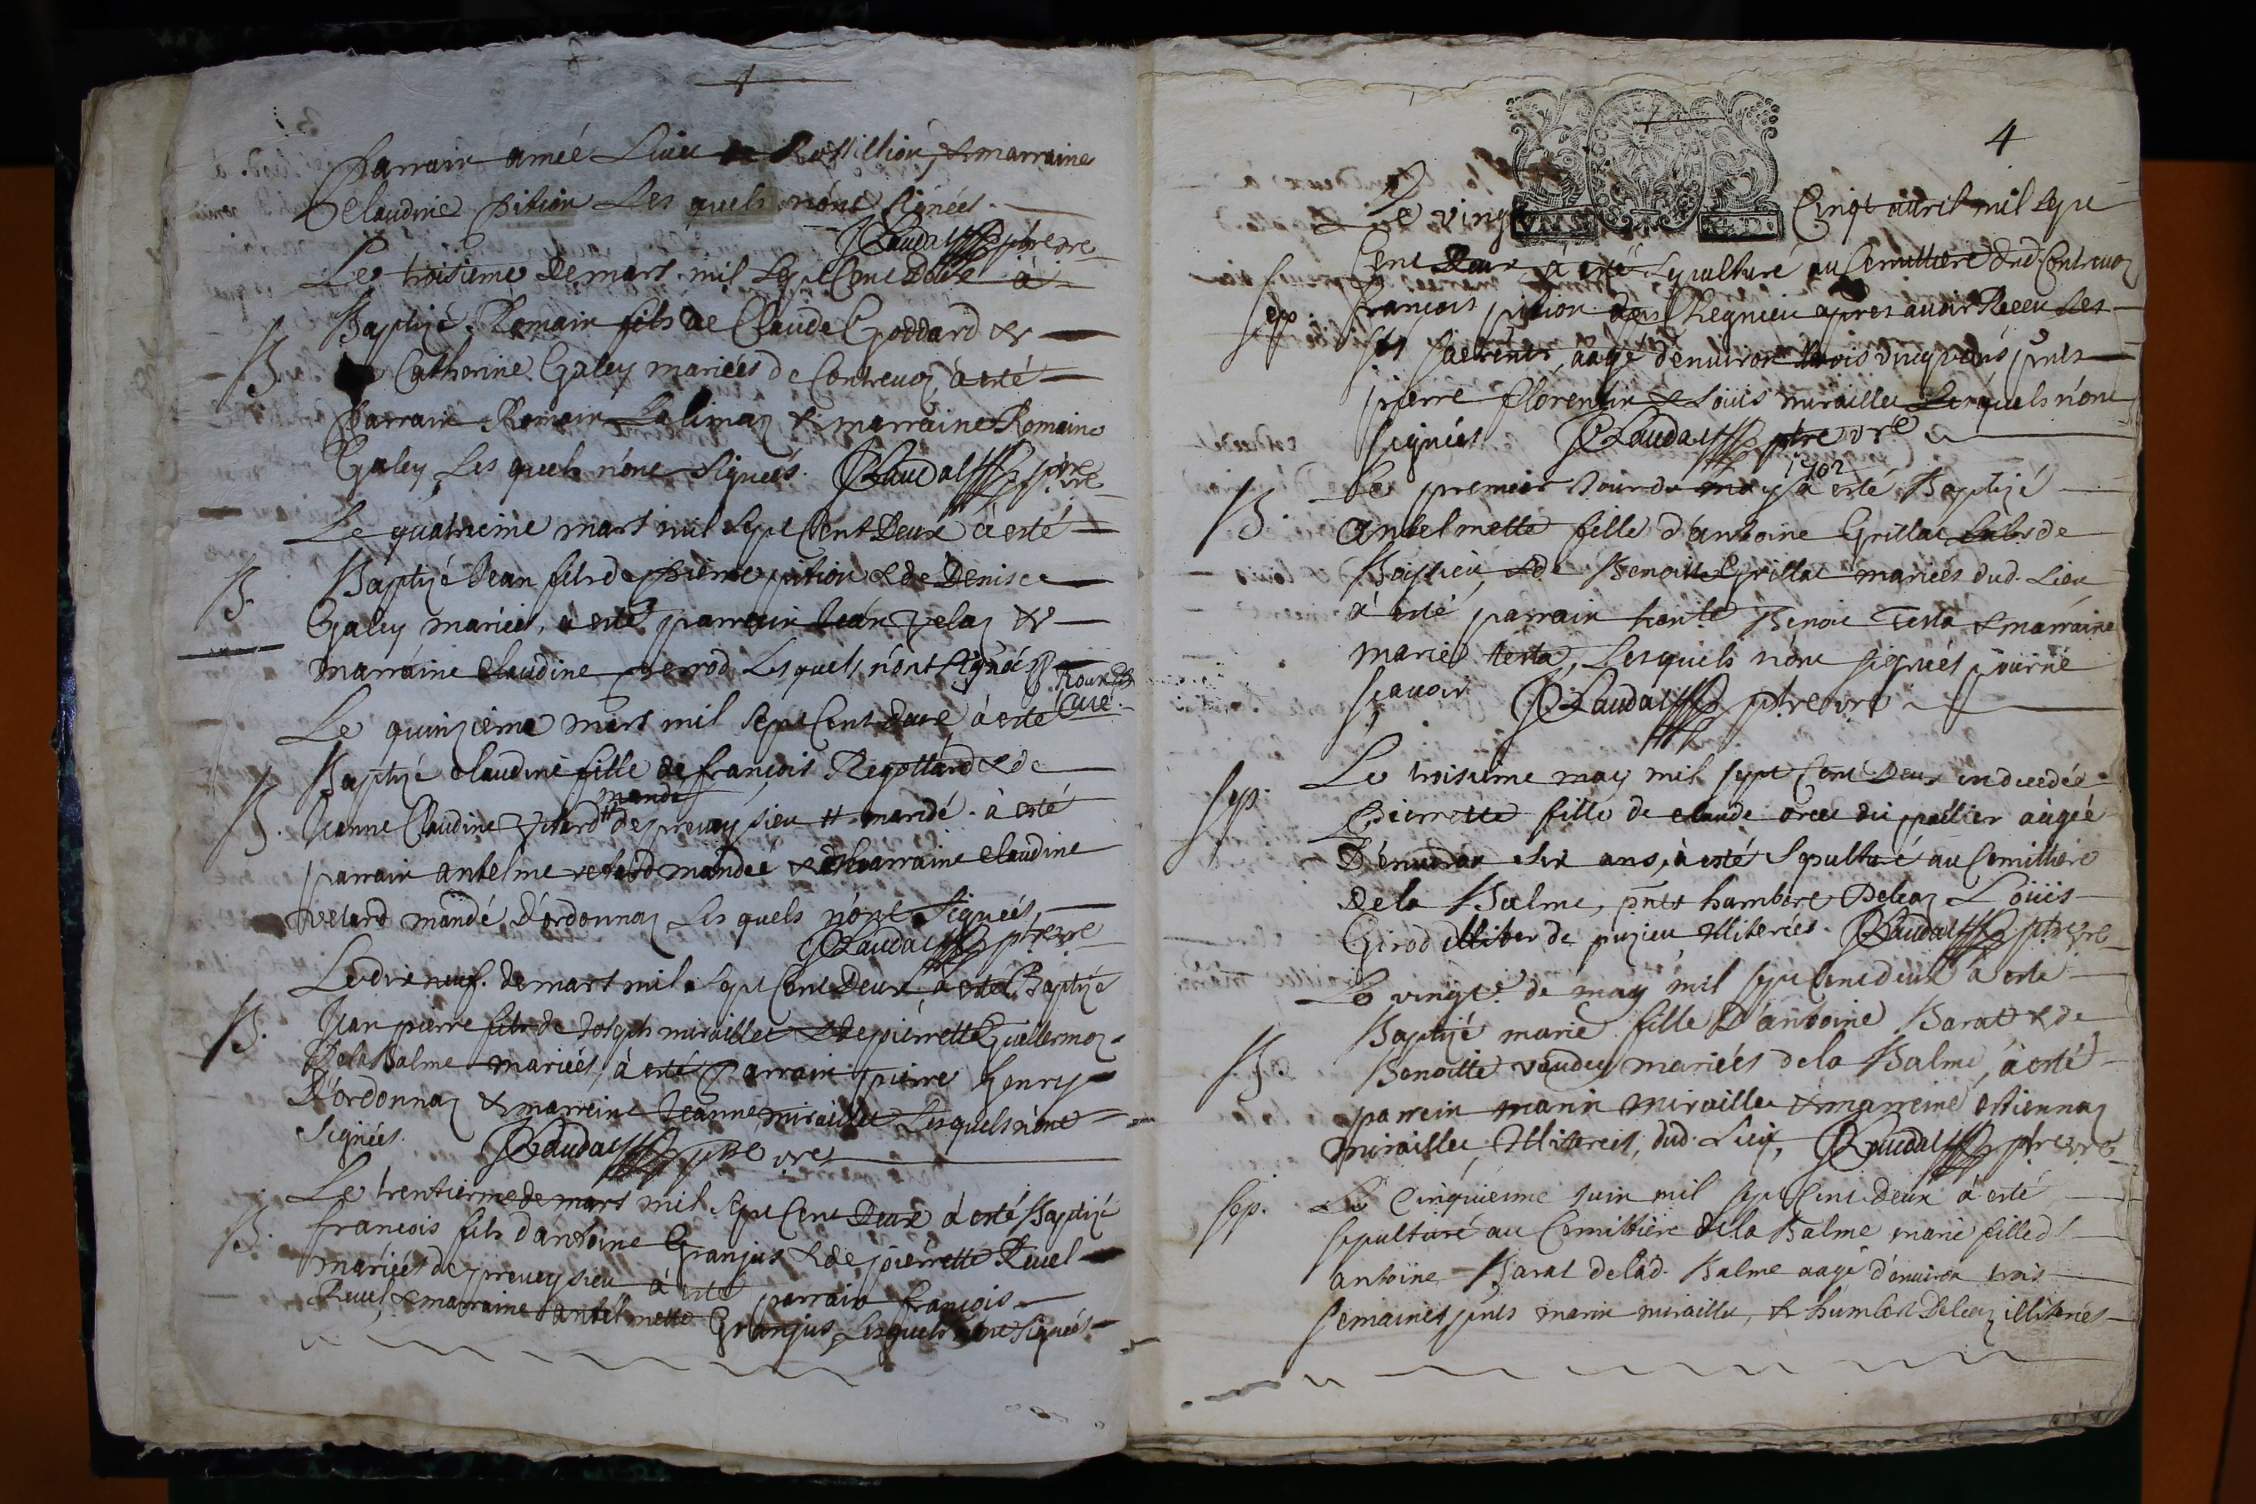 parrain amée Livet de Rossillion, & marraine
Claudine pition Les quels n'ont signées.
JBaudat ptre vre
Le troisieme de mars mil sept Cent Deux à
B. Baptizé Romain fils de Claude Goddard &
Catherine Galey mariées de Contrevoz à esté
parrain Romain Lalimaz & marraine Romaine
Galey Les quels n'ont signées. JBaudat ptre vre
Le quatrieme mars mil sept Cent Deux à esté
B. Baptizé Jean fils de pierre pition & de Denise
Galey mariées, à esté parrain Jean Velaz &
marraine Claudine perrod Lesquels n'ont signées
Curé.
Le quinzieme mars mil sept Cent Deux, à esté
Baptizé Claudine fille de françois Regottard & de
mande
B. Jeanne Claudine Vitard de preveysieu mandé. à esté
parrain antelme mandé & marraine Claudine
velard mandé D'ordonnaz Les quels n'ont signées,
JBaudat ptre vre
Le dix neuf. de mars mil sept Cent Deux à esté Baptizé
B. Jean pierre fils de Joseph miraillet & de pierrette Guillermoz
De la Balme mariées, à esté Parrain pierre Genry
D'ordonnaz & marreine Jeanne miraillet Lesquels n'ont
signées. JBaudat ptre vre
Le trentieme de mars mil sept Cent Deux à esté Baptizé
B. francois fils d'antoine Granjus & de pierrette Ruel
mariées de preveysieu à esté parrain francois
Ruel, & marraine antelmette Granjus Lesquels n'ont signées
4
Le vingt Cinqt avril mil sept
Cent Deux à esté sepulturé au Cemittiere dud Contrevoz
sep. francois pition de Chegnieu apres avoir Receu Les
Sts Sacrents, aagé d'environ trois vingt ans, pnts
pierre florentin & Loüis miraillet Lesquels n'ont
signées JBaudat ptre vre
1702
B. Le premier Jour du may à esté Baptizé
Antelmette fille d'antoine Grillat de
& de Benoitte Grillat mariées dud. Lieu
à esté parrain honte Benoit Testa & marraine
marie testa, Lesquels n'ont signées pour ne
scavoir JBaudat ptre vre
sep. Le troisieme may mil sept Cent Deux est decedée
Pierrette fille de claude du aägée
D'environ six ans, à esté sepulturé au Cemittiere
de la Balme, pnts humbert Deleaz Loüis
Girod de puzieu illiterés. JBaudat ptre vre
Le vingte. de may mil sept Cent deux à esté
B. Baptizé marie fille D'antoine Barat & de
Benoitte vaudey mariées de la Balme, à esté
parrein marin miraillet & marreine estiennaz
miraillet, Illiterés, dud. Lieu, JBaudat ptre vre
Sep. Le Cinquieme Juin mil sept Cent Deux à esté
sepulturé au Cemittiere de la Balme marie fille d'
antoine Barat de lad. Balme aagé d'environ trois
semaines pnts marin miraillet, & humbert Deleaz illiterés